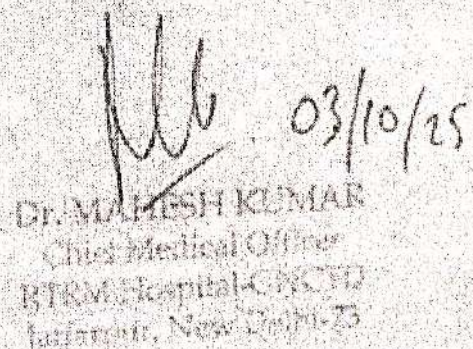 03/10/25
Dr. MAHESH KUMAR
Chief Medical Officer
RTRM Hospital-GNCTD
New Delhi-73